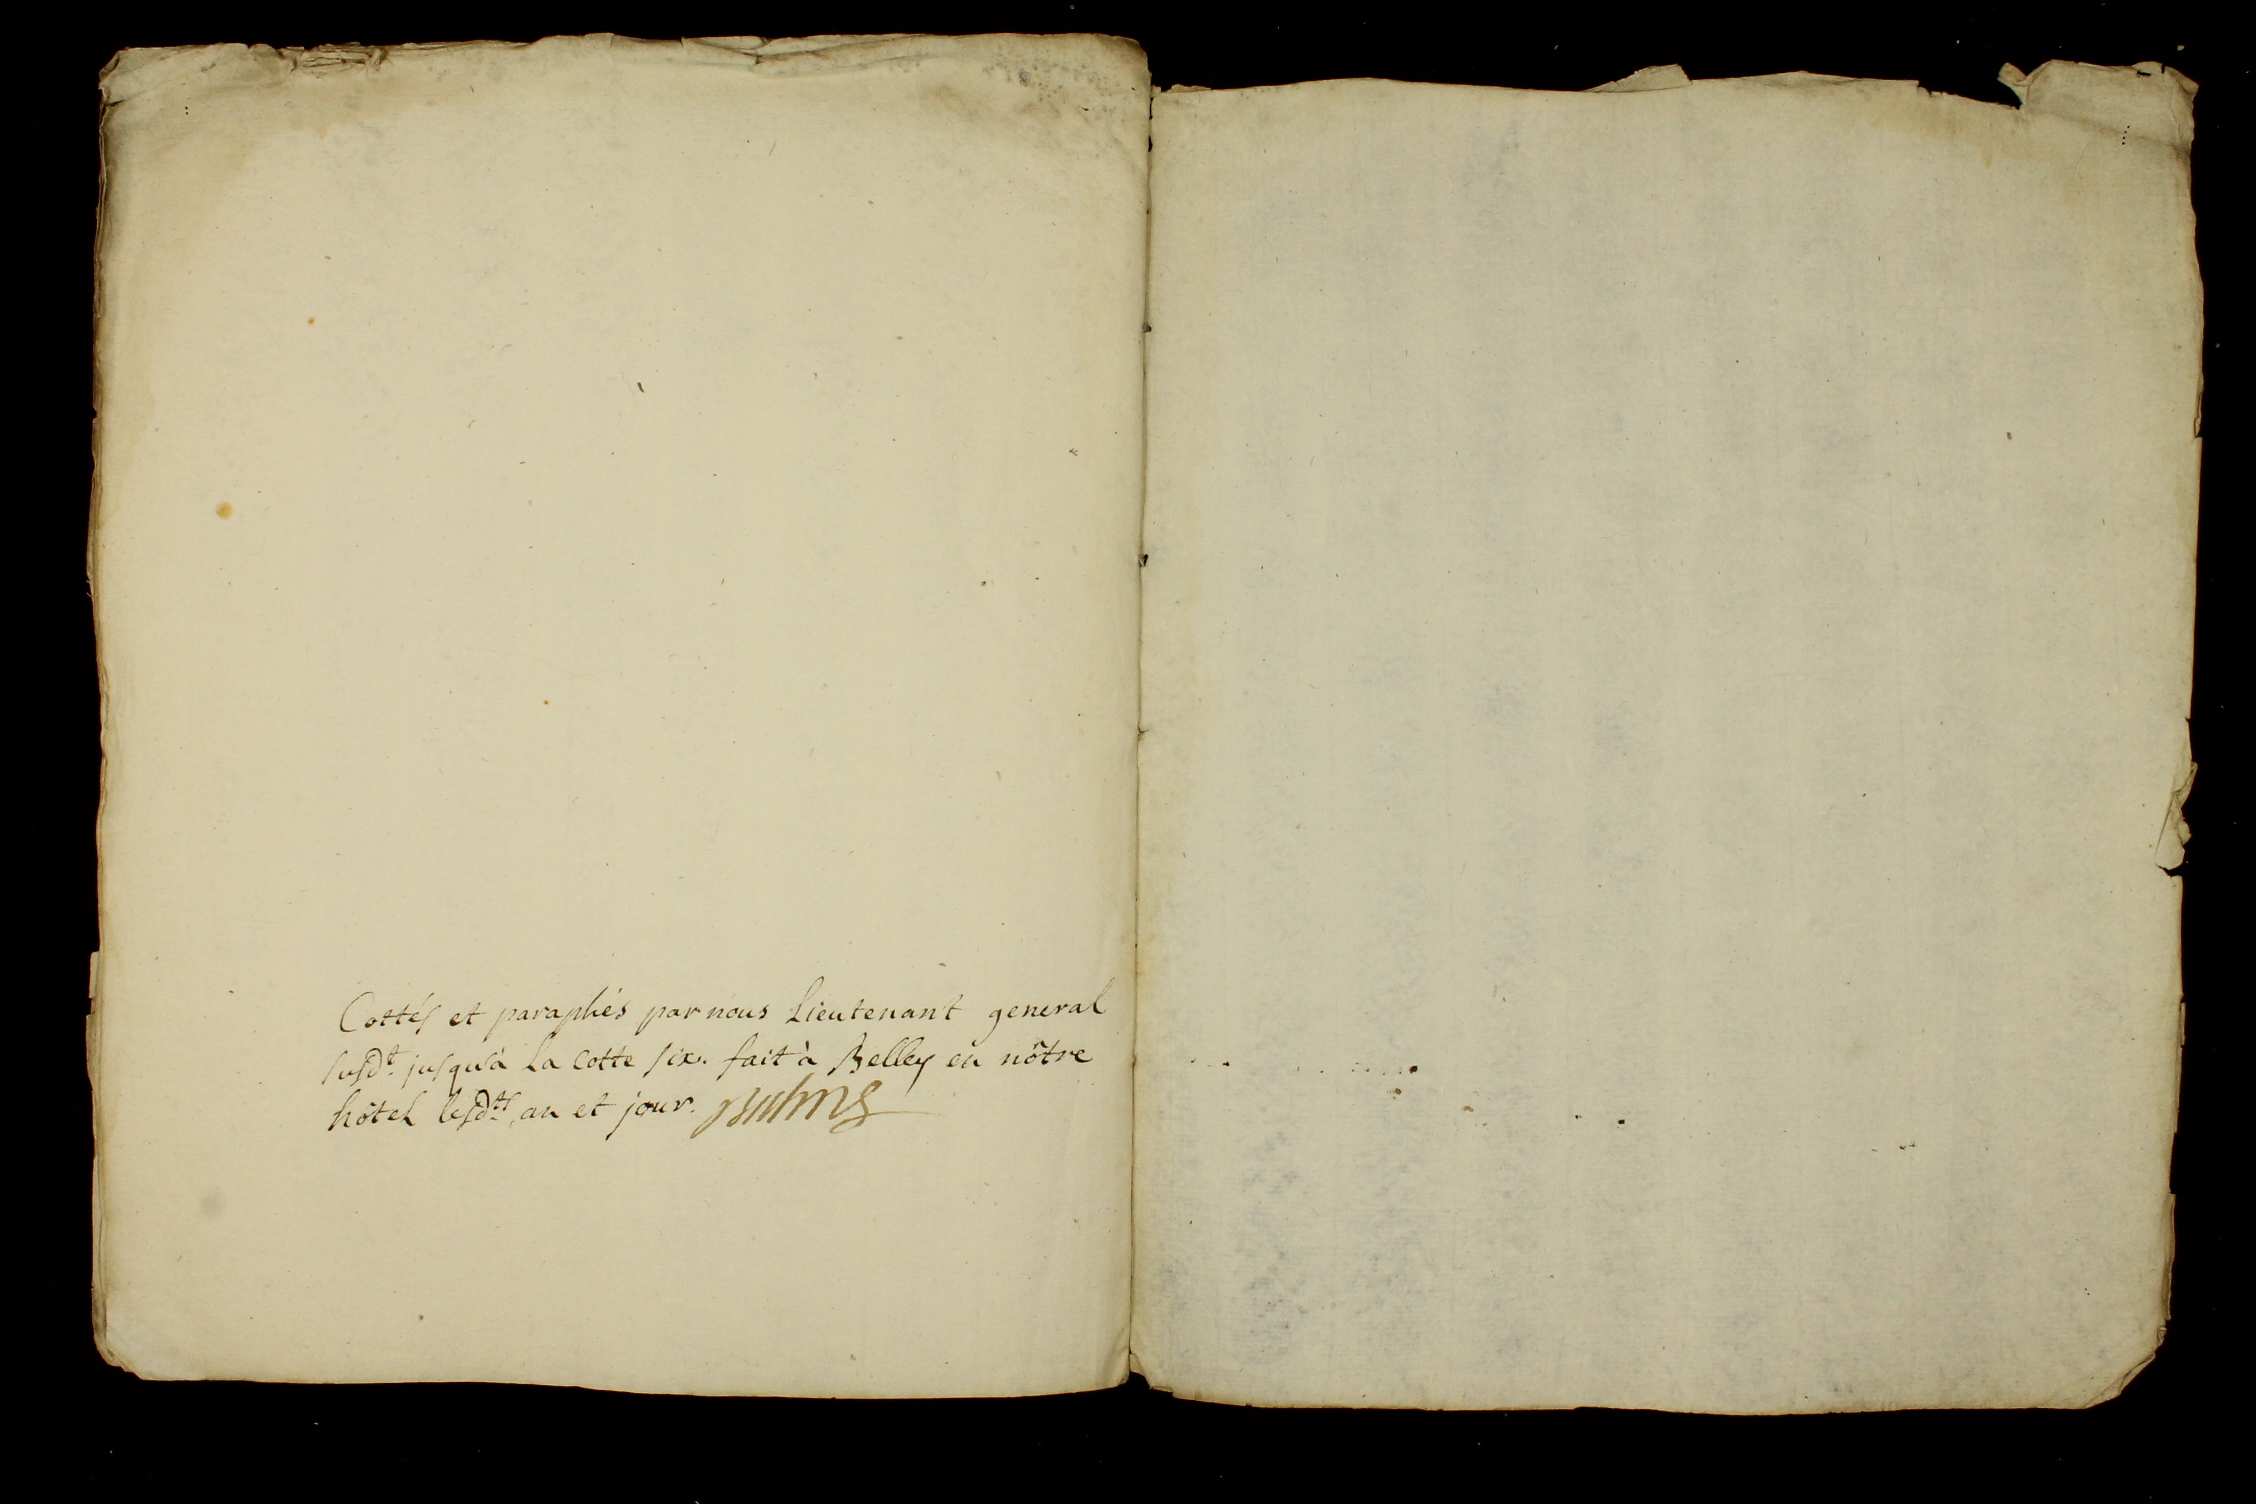 Cottés et paraphés par nous Lieutenant general
susdt. jusqu'à la cotte six. fait à Belley en nôtre
hôtel lesdts. an et jour.